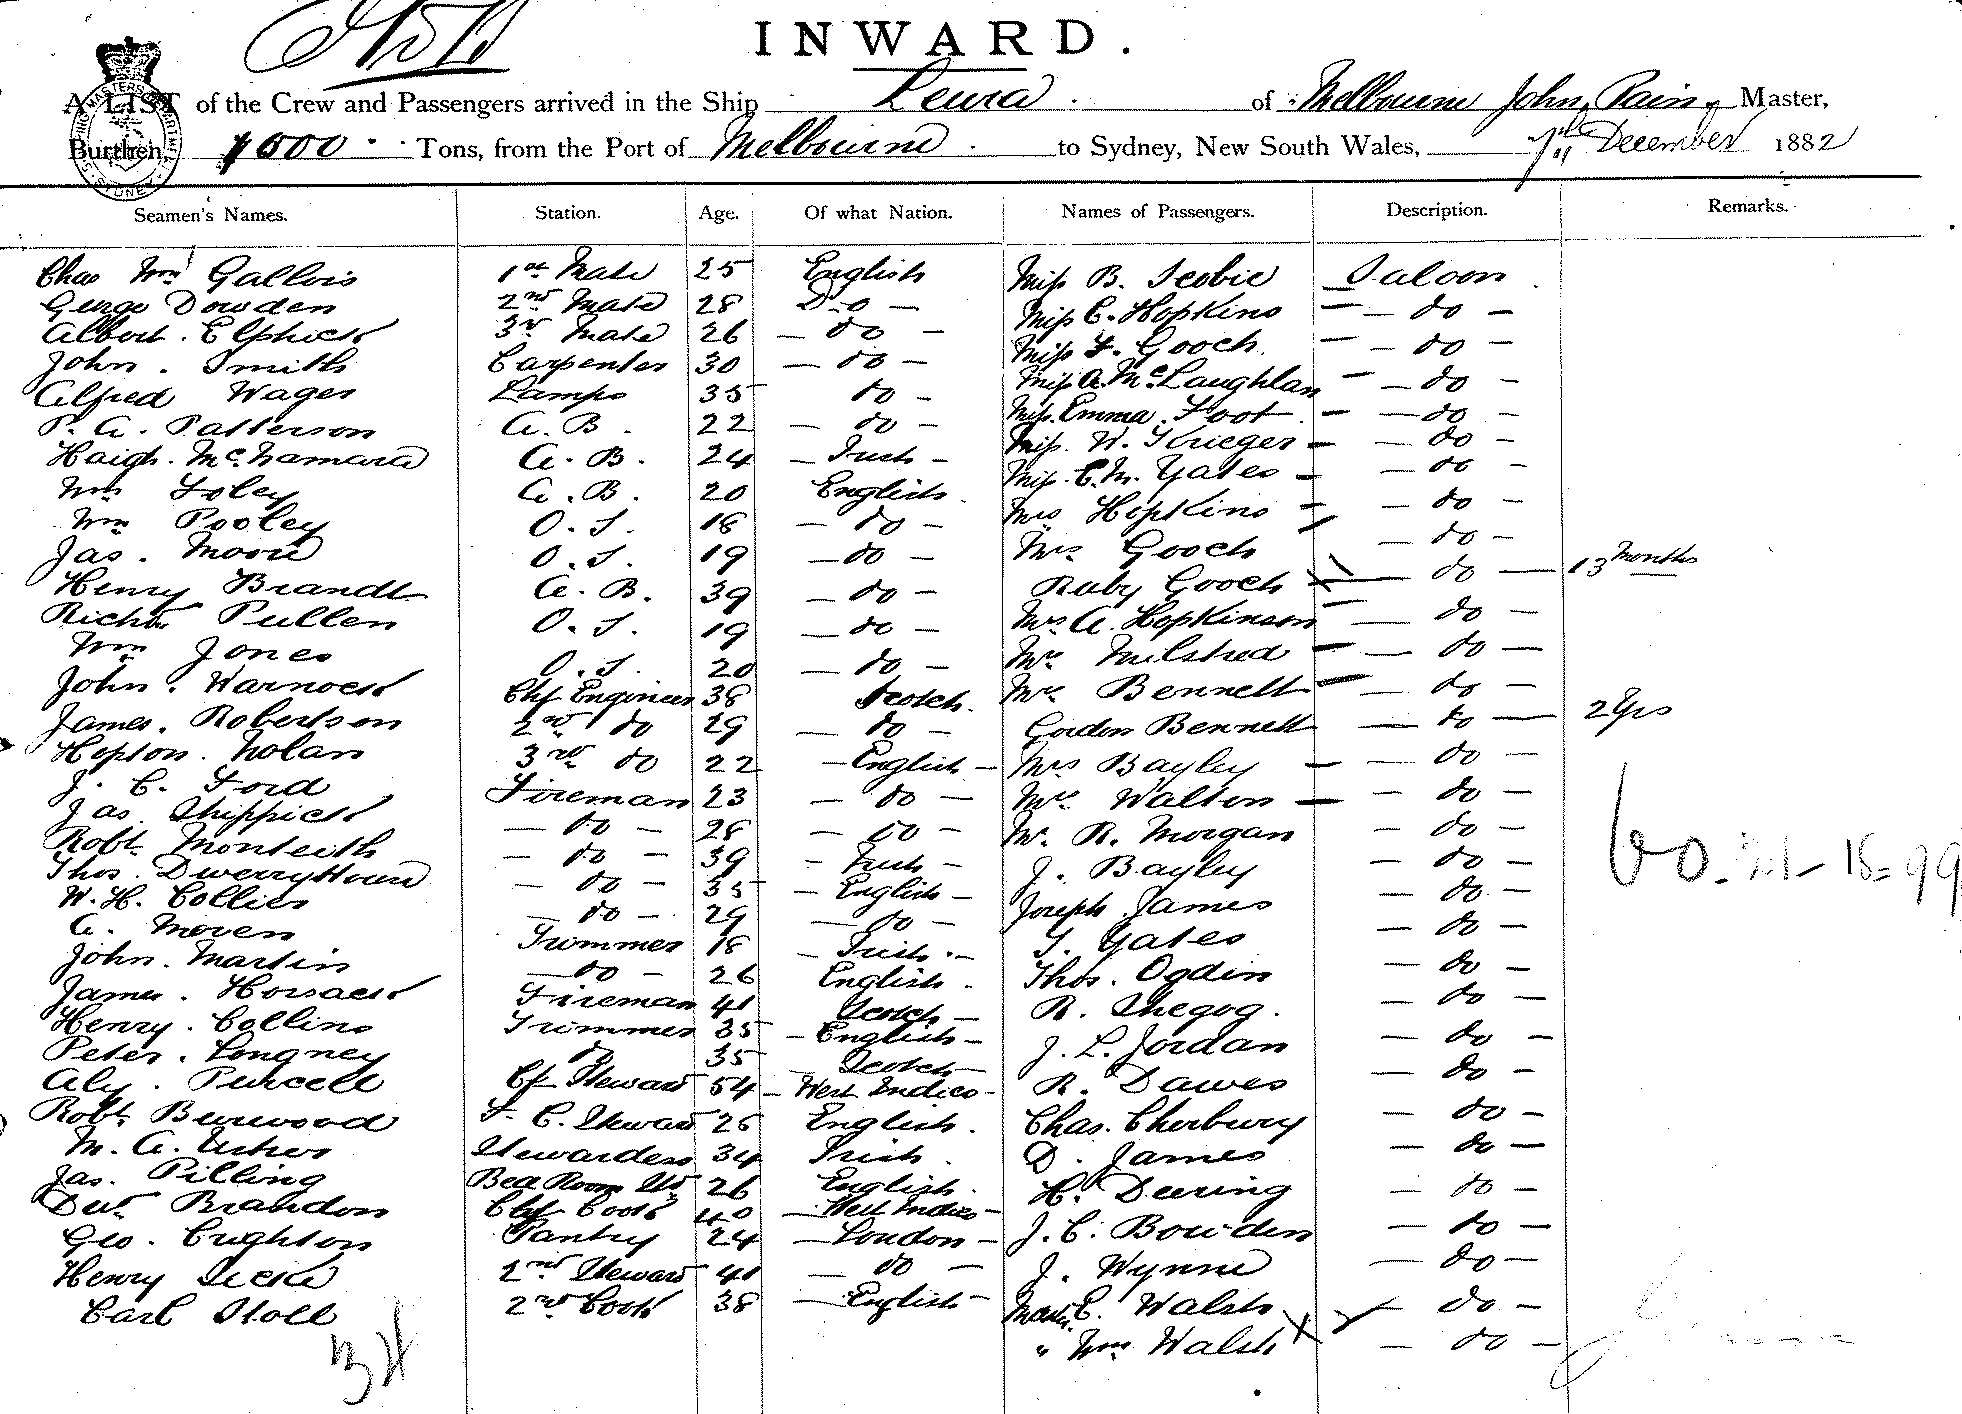 INWARD.
A LIST of the Crew and Passengers arrived in the Ship Leura of Melbourne John Pain, Master,
Burthen, 1000 Tons, from the Port of Melbourne to Sydney, New South Wales, 7th December 1882
Seamen's Names. Station. Age. Of what Nation. Names of Passengers. Description. Remarks.
Chas Wm Gallois 1st Mate 25 English Miss B. Scobie Saloon
George Dowden 2nd Mate 28 Do Miss C. Hopkins do
Albert Elphick 3rd Mate 26 do Miss F. Gooch do
John Smith Carpenter 30 do Miss A. McLaughlan do
Alfred Wager Lamps 35 do Miss Emma Foot do
P. A. Patterson A. B. 22 do Miss W. Krieger do
Haigh McNamara A. B. 24 Irish Miss C. M. Yates do
Wm Foley A. B. 20 English Mrs Hopkins do
Wm Pooley O. S. 18 do Mrs Gooch do
Jas. Moore O. S. 19 do Baby Gooch do 13 months
Henry Brandt A. B. 39 do Mrs A. Hopkinson do
Richd Pullen O. S. 19 do Mrs Milstred do
Wm Jones O. S. 20 do Mrs Bennett do
John Warnock Chf Engineer 38 Scotch Gordon Bennett do 2 yrs
James Robertson 2nd do 29 do Mrs Bayley do
Hopton Nolan 3rd do 22 English Mrs Walton do
J. C. Ford Fireman 23 do Mr R. Morgan do
Jas Shippick do 28 do J. Bayley do
Robt Monteith do 39 Irish Joseph James do
Thos. Dwerryhouse do 35 English T. Yates do
W. H. Collier do 29 do Thos. Ogdin do
A. Moven Trimmer 18 Irish R. Shegog do
John Martin do 26 English J. L. Jordan do
James Horsack Fireman 41 Scotch R. Dawes do
Henry Collins Trimmer 35 English Chas. Cherbury do
Peter Longney do 35 Scotch D. James do
Aly Purcell Cf Steward 54 West Indies H. Deering do
Robt Burwood F. C. Steward 25 English J. C. Bowden do
M. A. Usher Stewardess 34 Irish J. Wynne do
Jas. Pilling Bed Room Std 26 English Master C. Walsh do
Davd Brandon Chf Cook 40 West Indies " Wm Walsh do
Geo. Crighton Pantry 24 London
Henry 2nd Steward 41 do
Carl Stoll 2nd Cook 38 English
34